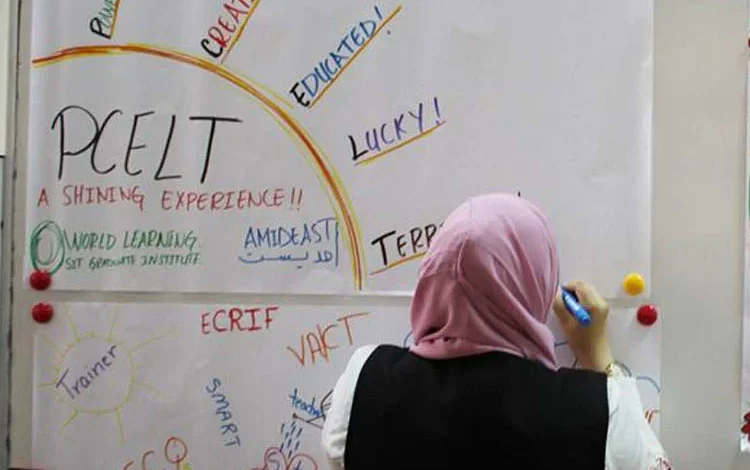 CREAT
EDUCATED!
LUCKY!
PCELT
A SHINING EXPERIENCE!!
WORLD LEARNING
SIT GRADUATE INSTITUTE
AMIDEAST
امديست
TERR
ECRIF
VAKT
Trainer
SMART